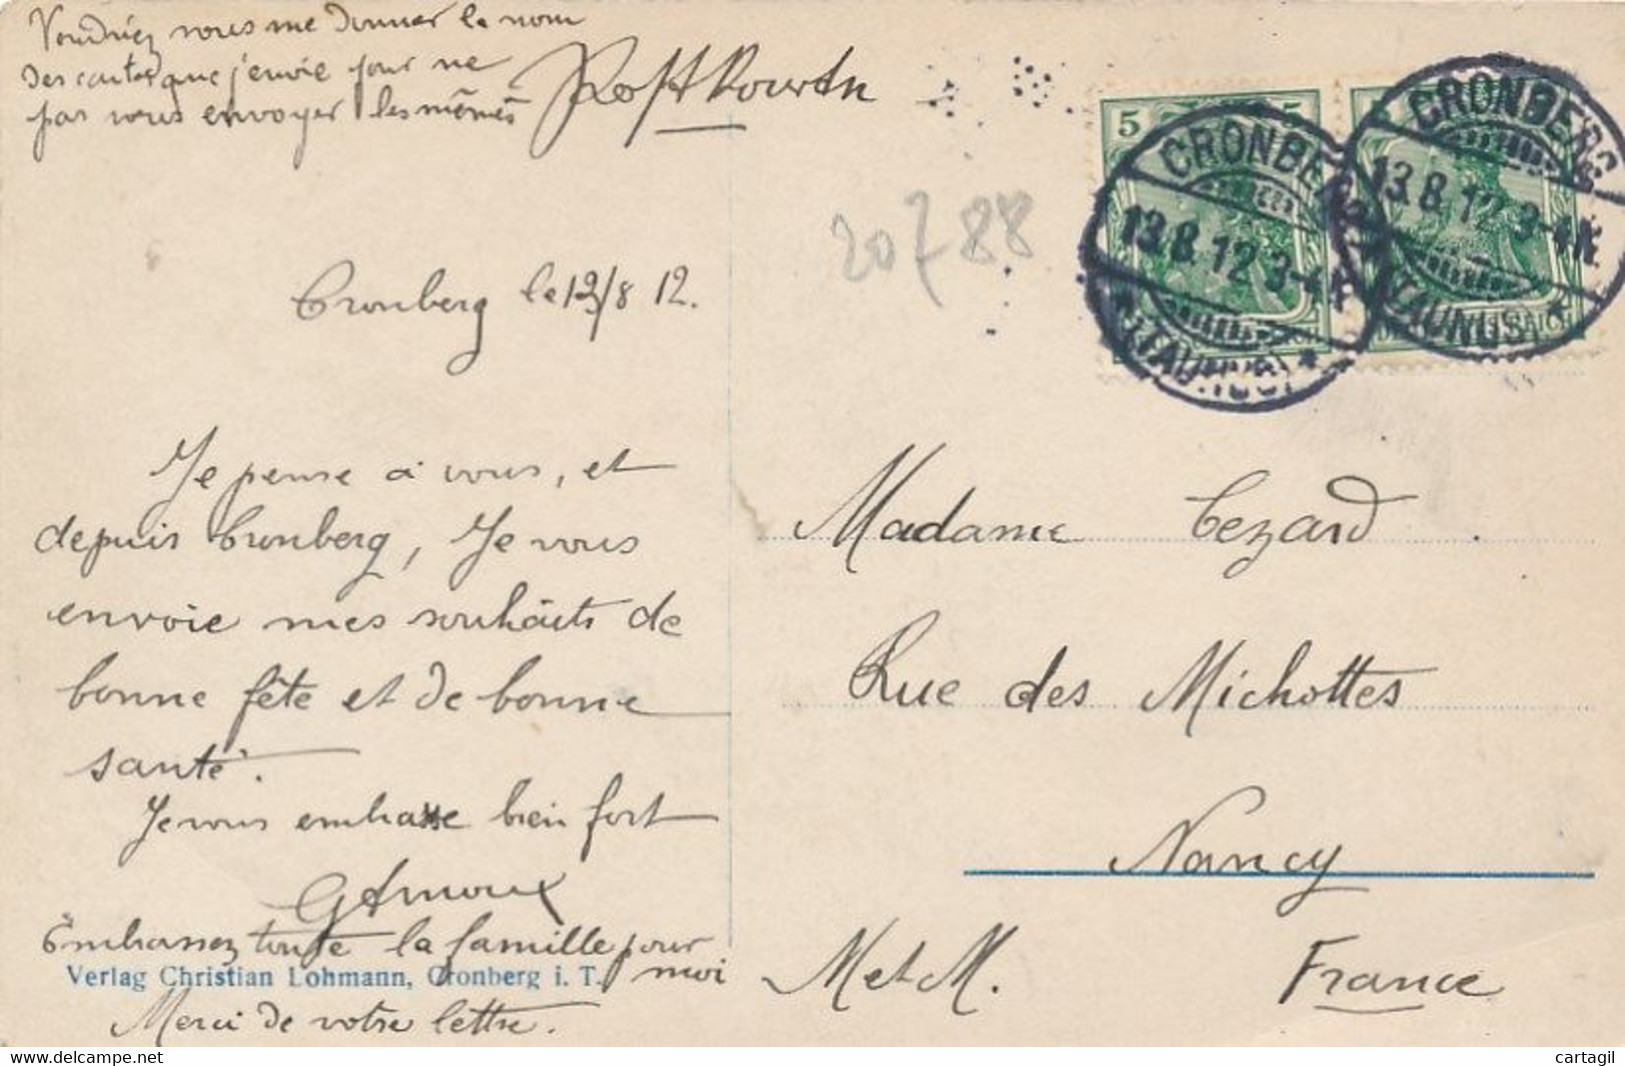 Voudriez vous me donner le nom
des cartes que j'envoie pour ne
pas vous envoyer les mêmes
Postkarten
5
5
CRONBERG
13.8.12 3-4 N.
(TAUNUS)
CRONBERG
13.8.12 3-4 N.
(TAUNUS)
20788
Cronberg le 13/8 12.
Je pense à vous, et
depuis Cronberg, Je vous
envoie mes souhaits de
bonne fête et de bonne
santé.
Je vous embrasse bien fort
GArnoux
Embrassez toute la famille pour
moi
Verlag Christian Lohmann, Cronberg i. T.
Merci de votre lettre.
Madame Cezard
Rue des Michottes
Nancy
M et M. France
cartagil
delcampe.net